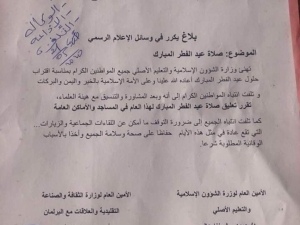 بلاغ يكرر في وسائل الإعلام الرسمي
الموضوع: صلاة عيد الفطر المبارك
تهنئ وزارة الشؤون الإسلامية والتعليم الأصلي جميع المواطنين الكرام بمناسبة اقتراب
حلول عيد الفطر المبارك أعاده الله علينا وعلى الأمة الإسلامية بالخير واليمن والبركات
و تلفت انتباه المواطنين الكرام إلى أنه وبعد المشاورة والتنسيق مع هيئة العلماء،
تقرر تعليق صلاة عيد الفطر المبارك لهذا العام في المساجد والأماكن العامة
كما تلفت انتباه الجميع إلى ضرورة التوقف ما أمكن عن اللقاءات الجماعية والزيارات...
التي تقع عادة في مثل هذه الأيام حفاظا على صحة وسلامة الجميع وأخذا بالأسباب
الوقائية المطلوبة شرعا.
الأمين العام لوزارة الشؤون الإسلامية
والتعليم الأصلي
الأمين العام لوزارة الثقافة والصناعة
التقليدية والعلاقات مع البرلمان